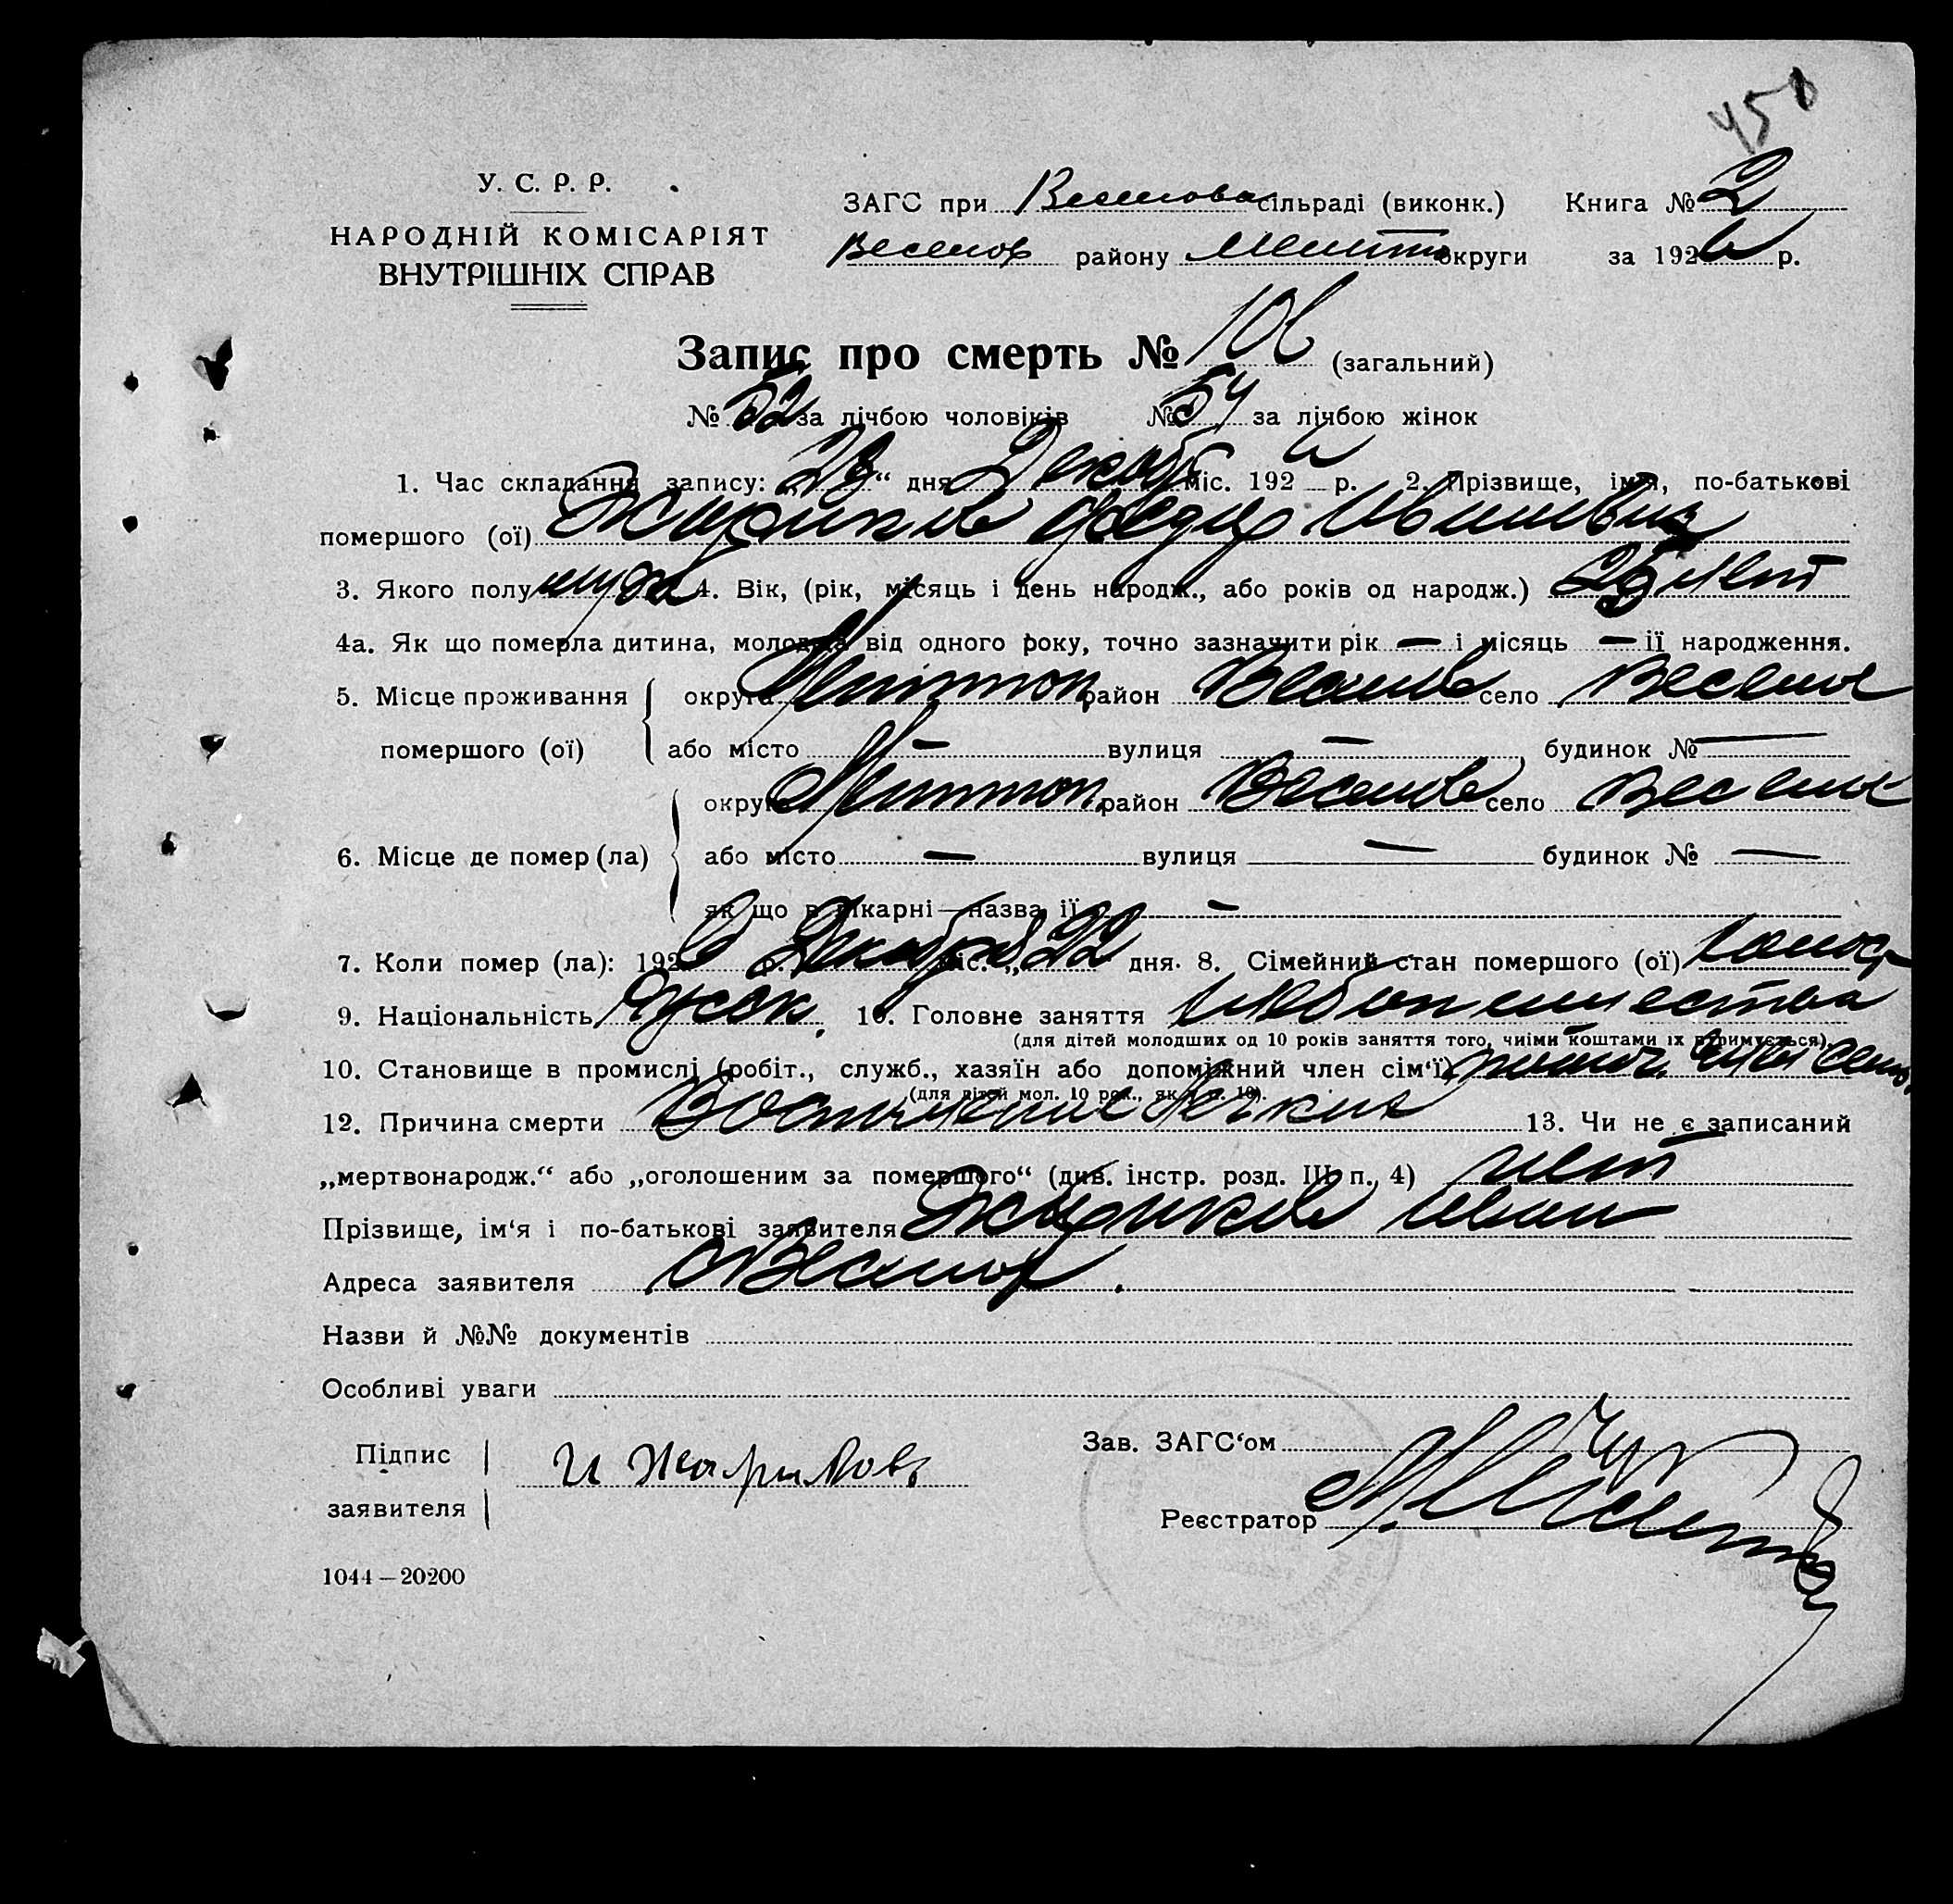 450
У. С. Р. Р.
НАРОДНІЙ КОМІСАРІЯТ
ВНУТРІШНІХ СПРАВ
ЗАГС при сільраді (виконк.) Книга № 2
Веселов району округи за 192 6 р.
Запис про смерть № 106 (загальний)
№ 52 за лічбою чоловіків № 54 за лічбою жінок
1. Час складання запису: „28“ дня Декабр міс. 192 6 р. 2. Прізвище, ім'я, по-батькові
помершого (ої) Жариков Федор Иванович
3. Якого полу муж 4. Вік, (рік, місяць і день народж., або років од народж.) лет
4а. Як що померла дитина, молодша від одного року, точно зазначити рік — і місяць — ії народження.
5. Місце проживання округа Мелитоп район Веселов село Веселое
помершого (ої) або місто — вулиця — будинок № —
округа Мелитоп район Веселов село Веселое
6. Місце де помер (ла) або місто — вулиця — будинок № —
як що в лікарні—назва ії —
7. Коли помер (ла): 192 6 р. Декабря міс. „22 дня. 8. Сімейний стан помершого (ої) холост
9. Національність Русск. 10. Головне заняття Хлебопашество
(для дітей молодших од 10 років заняття того, чиїми коштами їх утримується).
10. Становище в промислі (робіт., служб., хазяїн або допоміжний член сім'ї)
(для дітей мол. 10 рок., як в п. 10).
12. Причина смерти Воспаление легких 13. Чи не є записаний
„мертвонародж.“ або „оголошеним за помершого“ (див. інстр. розд. III п. 4) нет
Прізвище, ім'я і по-батькові заявителя Жариков Иван
Адреса заявителя с Веселое.
Назви й №№ документів
Особливі уваги
Підпис И Жариковъ Зав. ЗАГС'ом
заявителя Реєстратор
1044—20200